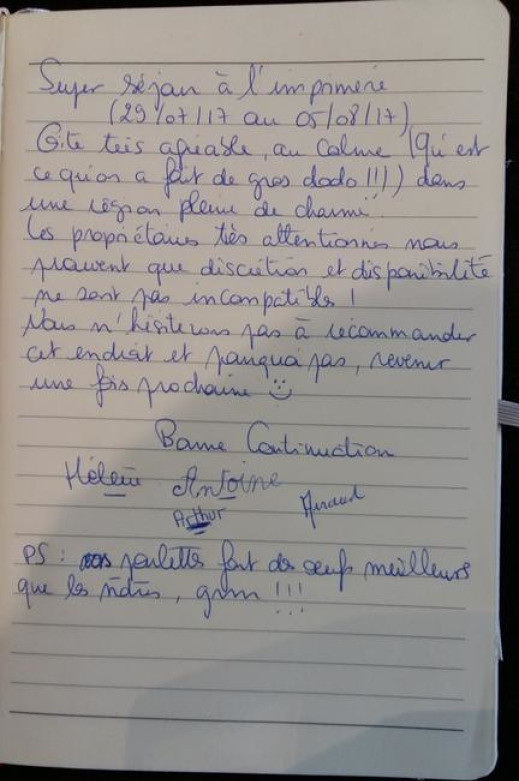 Super séjour à l'imprimerie
(29/07/17 au 05/08/17)
Gîte très agréable, au calme (Qui est
ce qu'on a fait de gros dodo !!!) dans
une région pleine de charme.
Les propriétaires très attentionnés nous
prouvent que discrétion et disponibilité
ne sont pas incompatibles !
Nous n'hésiterons pas à recommander
cet endroit et pourquoi pas, revenir
une fois prochaine ☺
Bonne Continuation
Hélène Antoine
Arthur Arnaud
PS : vos poulettes font des oeufs meilleurs
que les nôtres, grrrr !!!